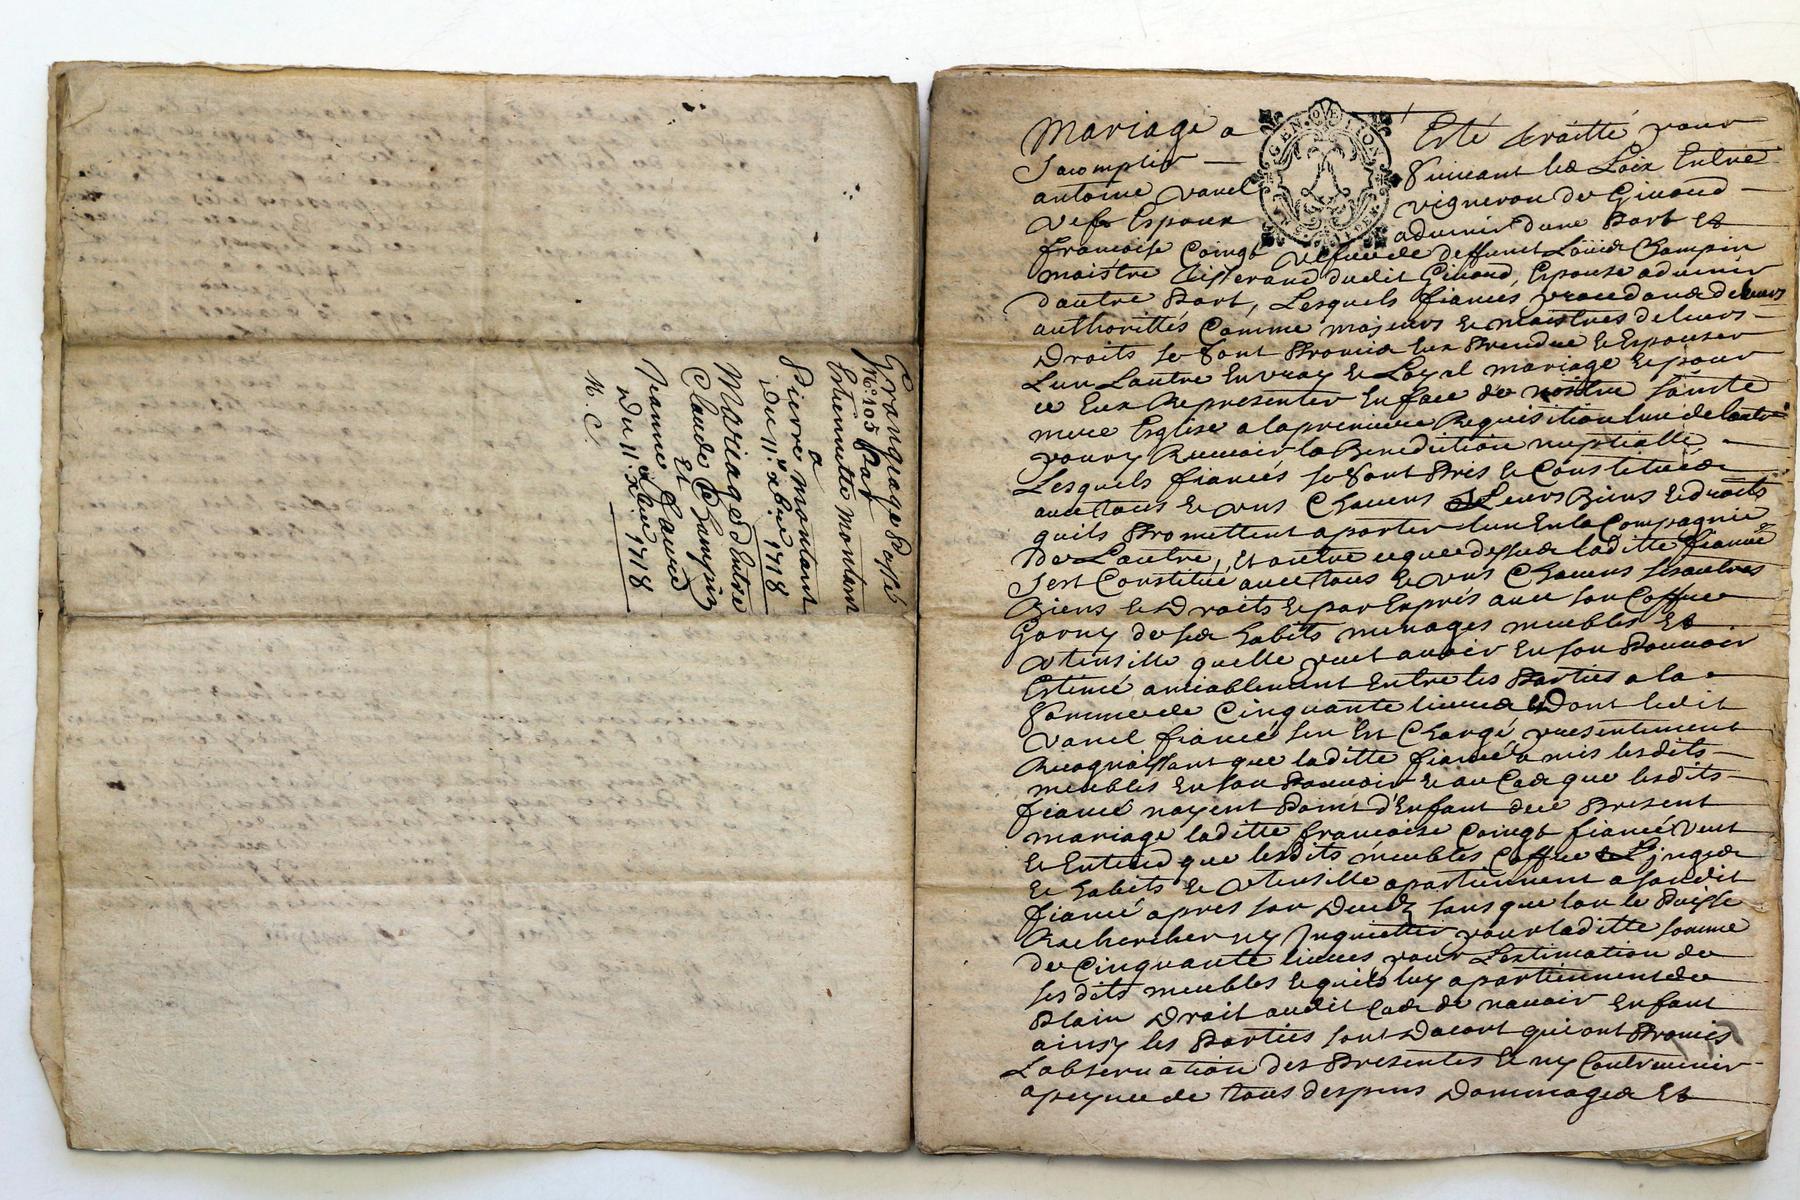 Grangeage Passé
No. 105 Par
Estiennette montant
a
Pierre montant
Du 11e xbre 1718
Mariage Entre
Claude Champin
Et
Jeanne Faure
Du 11e xbre 1718
N. C.
Mariage a Esté traitté pour
Sacomplir suivant les Loix Entre
antoine vanel vigneron de Givord
Vef Espoux advenir d'une Part et
francoise Coingt vesfue de deffunt Loüis Champin
maistre tisserand dudit Givord, Espouse advenir
dautre Part, Lesquels fiancés, procedans de leurs
authorittés Comme majeurs et maistres de leurs
Droits se sont Promis Eux Prendre et Espouser
Lun Lautre En vray et Loyal mariage et pour
ce Eux Representer En face de nostre sainte
mere Esglise a la premiere Requisition lun de lautre
pour y Recevoir la Benedition nuptialle
Lesquels fiancés se sont Pris et Constitués
avec tous et uns Chacuns Leurs Biens et droits
quils Promettent aporter lun En la Compagnie
De Lautre, Et outre ce que dessus laditte fiancée
Sest Constitué avec tous et uns Chacuns ses autres
Biens et Droits et par Exprés avec son Coffre
Garny de ses habits menages meubles Et
Utensille quelle peut avoir En son Pouvoir
Estimé amiablement Entre les Parties a la
Somme de Cinquante livres Dont ledit
vanel fiancé sen Est Chargé presentement
Recognoissant que laditte fiancée a mis lesdits
meubles En son Pouvoir et au Cas que lesdits
fiancé nayent Point d'Enfant de ce Present
mariage laditte francoise Coingt fiancé veut
et Entend que lesdits meubles Coffre Linges
et habits et Utensille apartiennent a sondit
fiancé apres son Decedz sans que lon le Puisse
Rechercher ny Inquietter pour laditte somme
de Cinquante livres pour Lestimation de
sesdits meubles et quils luy apartiennent de
Plain Droit audit Cas de navoir Enfant
ainsy les Parties sont Dacort qui ont Promis
Lobservation des Presentes et ny Contrevenir
a peyne de tous despens Dommages Et